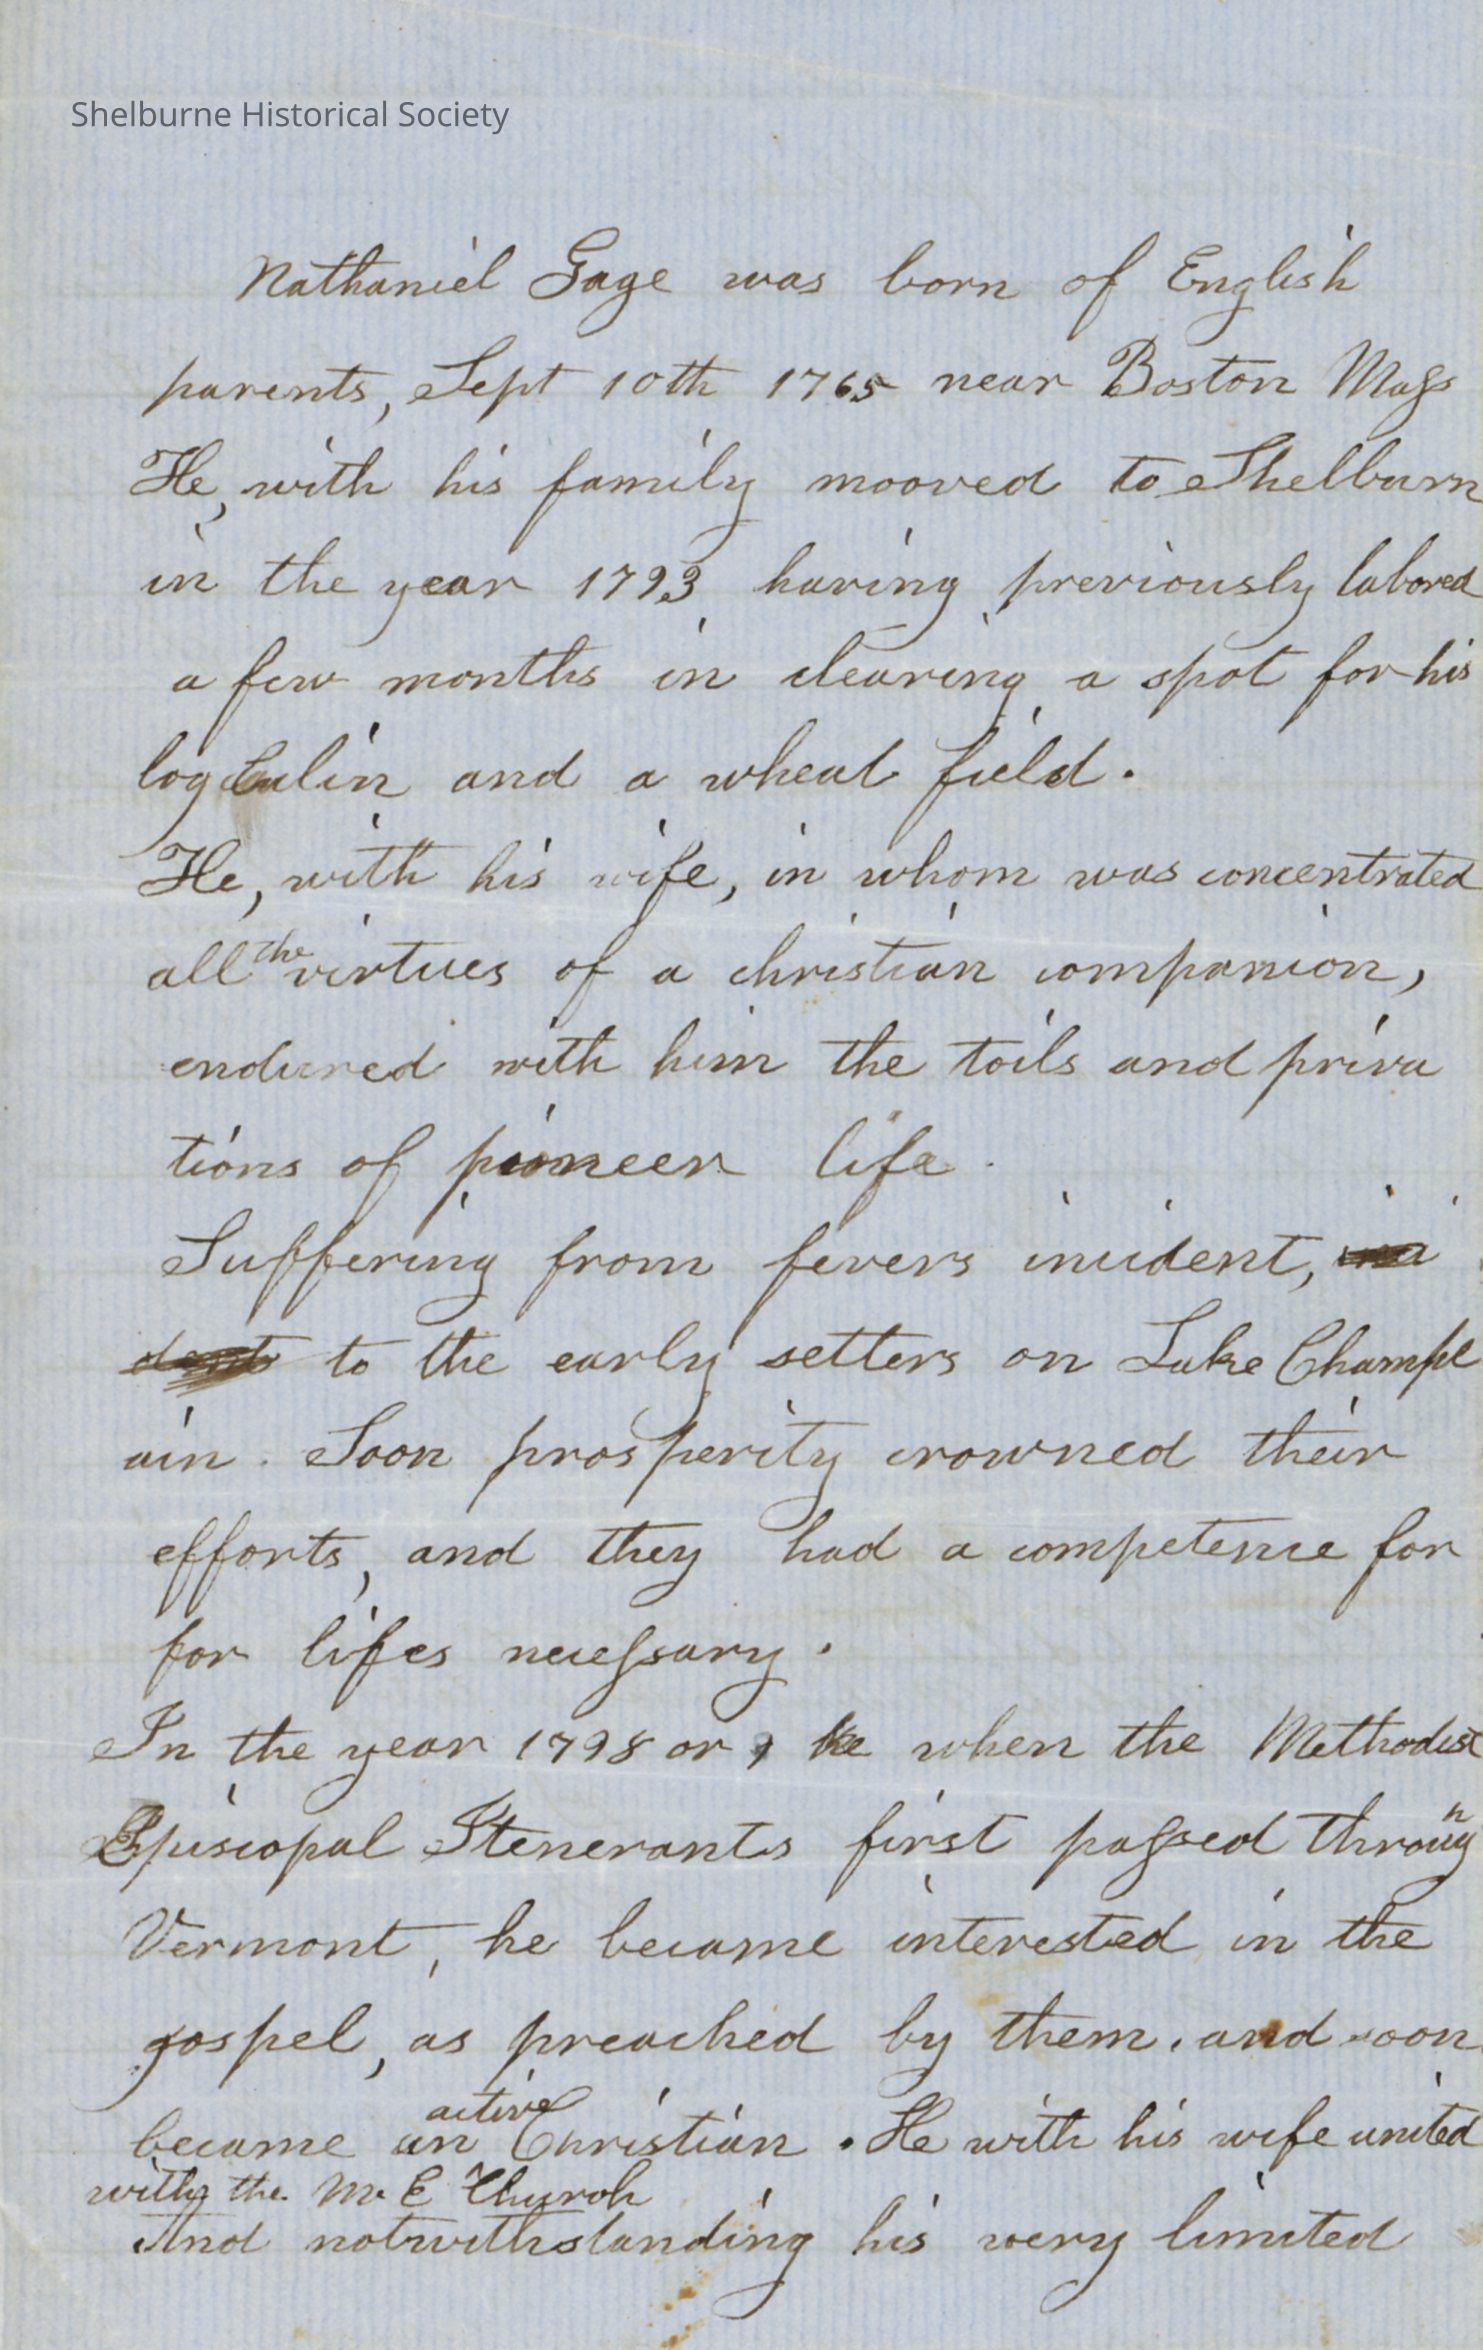 Shelburne Historical Society
Nathaniel Gage was born of English
parents, Sept 10th 1765 near Boston Mass
He, with his family mooved to Shelburn
in the year 1793, having previously labored
a few months in clearing a spot for his
log Cabin and a wheat field.
He, with his wife, in whom was concentrated
all the virtues of a christian companion,
endured with him the toils and priva
tions of pioneer life.
Suffering from fevers incident,
to the early setters on Lake Champl
ain. Soon prosperity crowned their
efforts, and they had a competence for
for lifes necessary.
In the year 1798 or 9 when the Methodist
Episcopal Itenerants first passed throug
Vermont, he became interested in the
gospel, as preached by them. and soon
became an active Christian. He with his wife united
with the M. E Church
And notwithstanding his very limited